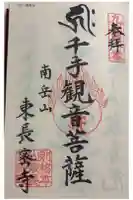 奉拝
千手觀音菩薩
南岳山
東長密寺